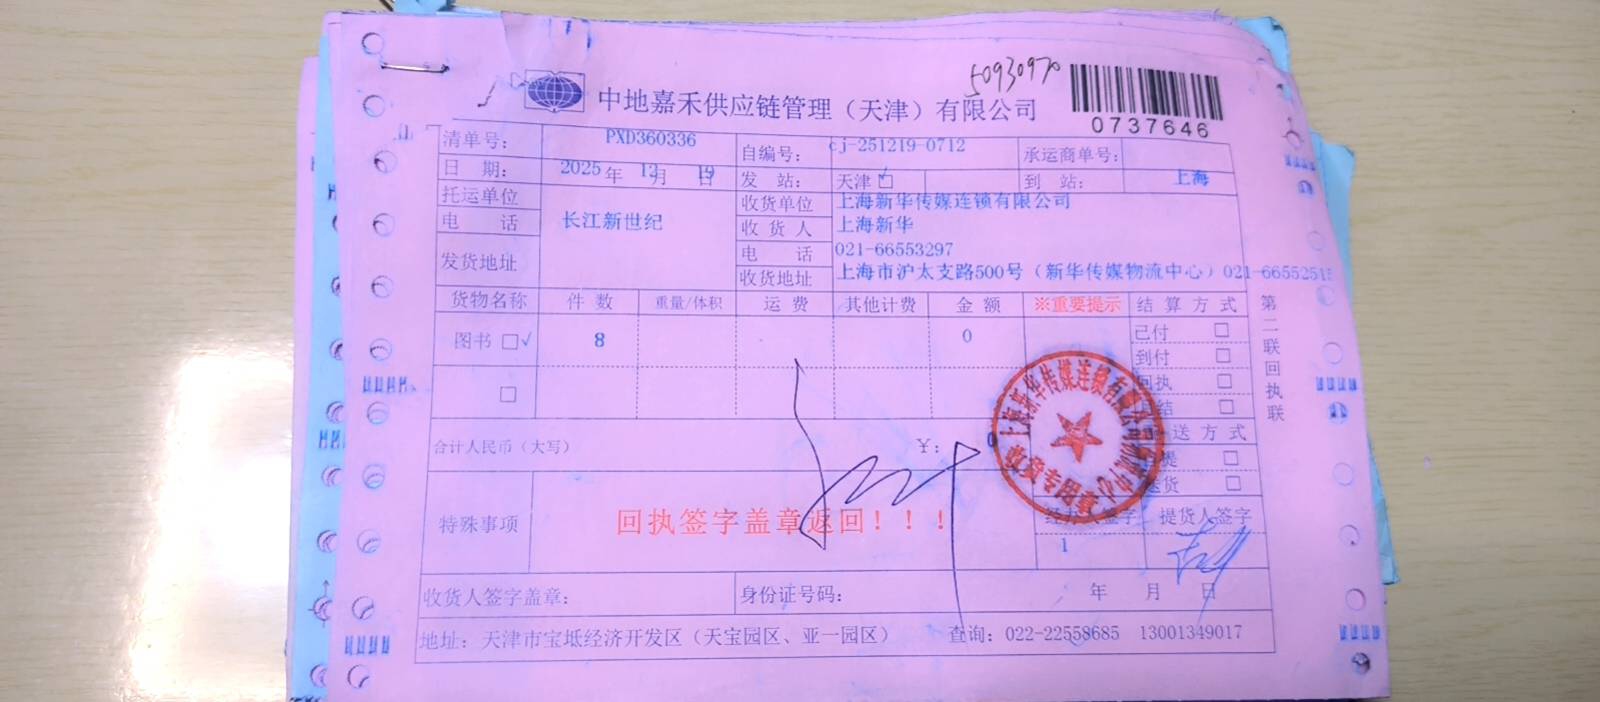 50930970
中地嘉禾供应链管理（天津）有限公司
0737646
清单号： PXD360336 自编号： cj-251219-0712 承运商单号：
日 期： 2025 年 12 月 19 日 发 站： 天津 □ ✓ 到 站： 上海
托运单位 长江新世纪 收货单位 上海新华传媒连锁有限公司
电 话 收 货 人 上海新华
电 话 021-66553297
发货地址 收货地址 上海市沪太支路500号（新华传媒物流中心）021-6655251
货物名称 件 数 重量/体积 运 费 其他计费 金 额 ※重要提示 结 算 方 式
图书 □✓ 8 0 已付 □
到付 □
□ 回执 □
结 □
合计人民币（大写） ￥： 0 送 方 式
提 □
送货 □
特殊事项 回执签字盖章返回！！！ 签字 提货人签字
1
收货人签字盖章： 身份证号码： 年 月 日
地址：天津市宝坻经济开发区（天宝园区、亚一园区） 查询：022-22558685 13001349017
第二联回执联
上海新华传媒连锁有限公司物流中心
收货专用章